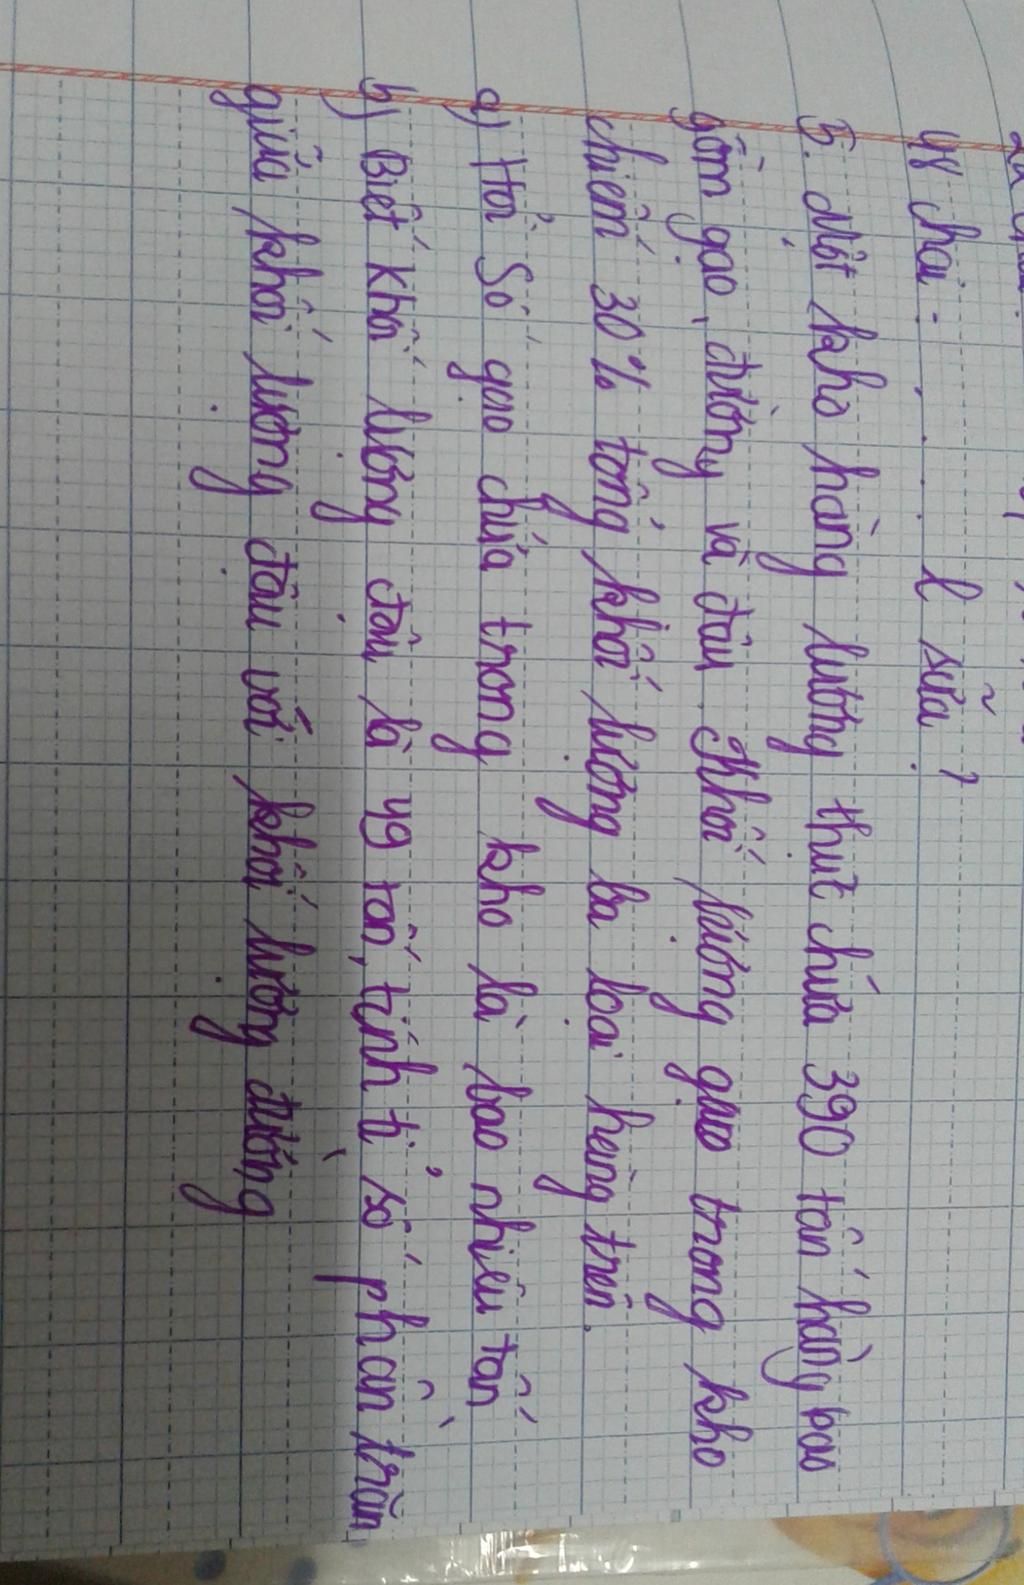 48 chai : . . . . l sữa ?
5. Một kho hàng lương thực chứa 390 tấn hàng bao
gồm gạo, đường và đậu. Khối lượng gạo trong kho
chiếm 30% tổng khối lượng ba loại hàng trên.
a) Hỏi Số gạo chứa trong kho là bao nhiêu tấn
b) Biết khối lượng đậu là 49 tấn, tính tỉ số phần trăm
giữa khối lượng đậu với khối lượng đường